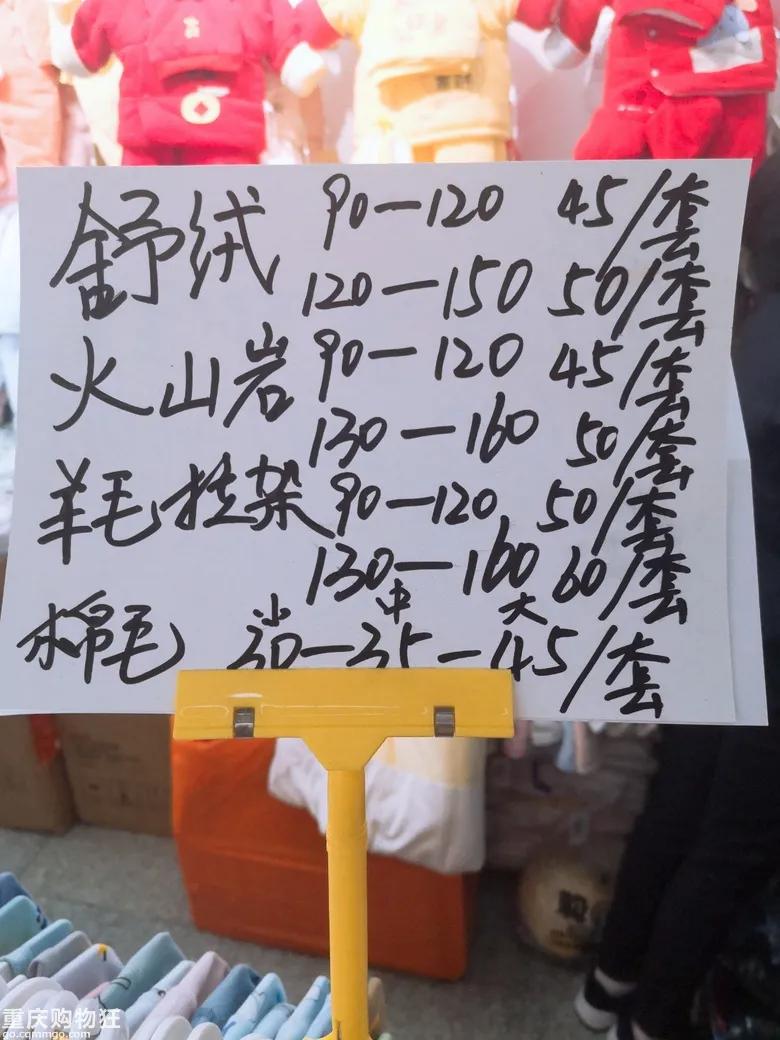 舒绒 90—120 45/套
120—150 50/套
火山岩 90—120 45/套
130—160 50/套
羊毛挂架 90—120 50/套
130—160 60/套
小 中 大
棉毛 30—35—45/套
重庆购物狂
go.cqmmgo.com